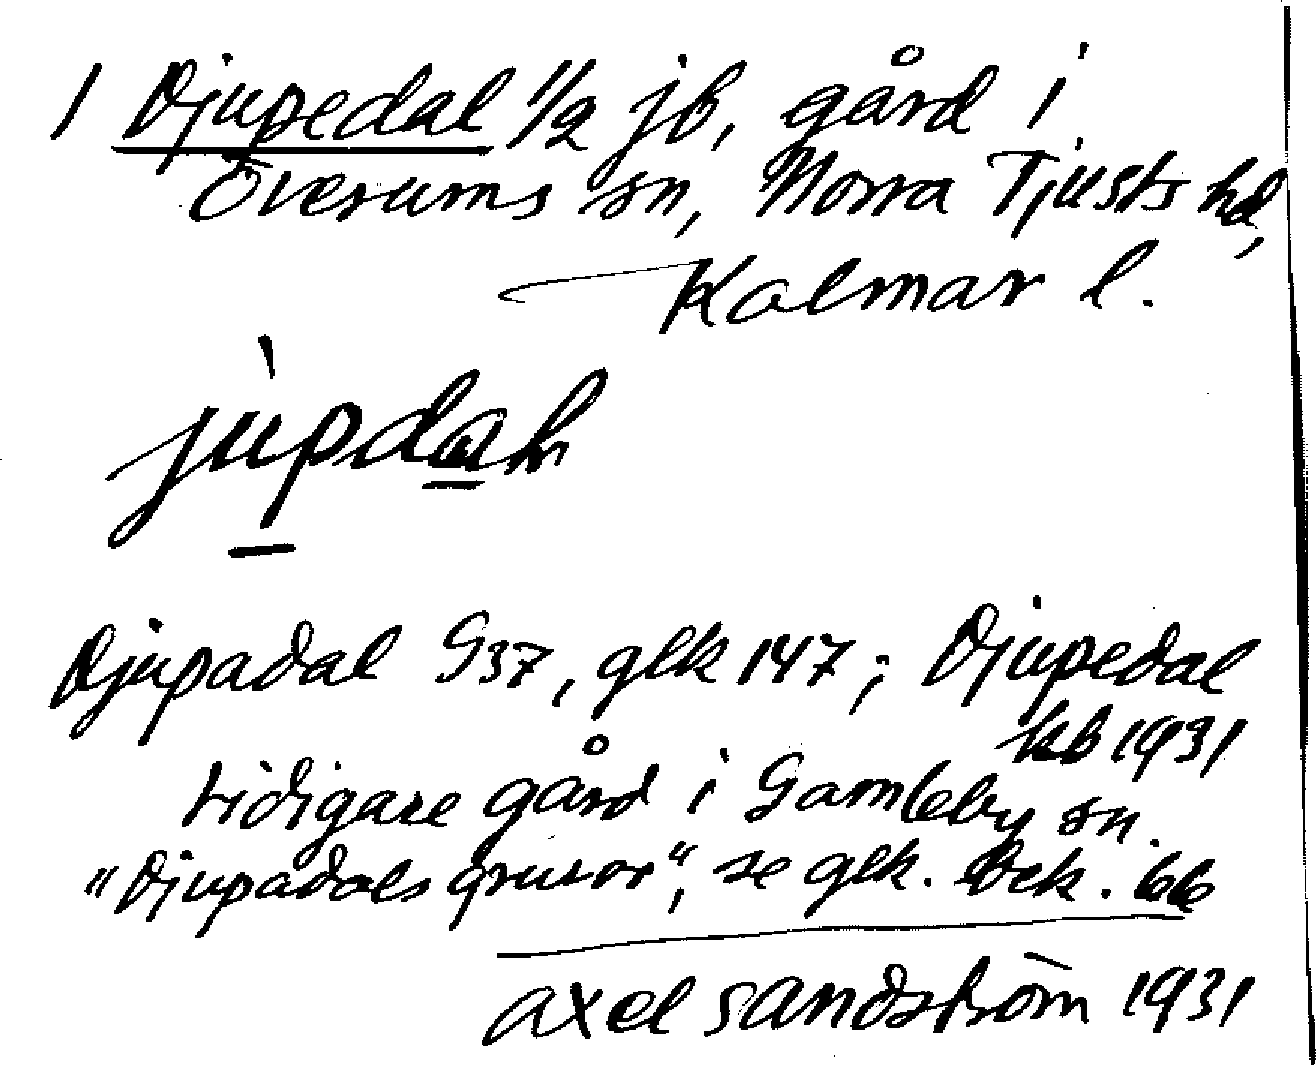 1 Djupedal 1/2 jb, gård i
Överums sn, Norra Tjusts hd,
Kalmar l.
Djupadal G37, glk 147; Djupedal
kb 1931
tidigare gård i Gamleby sn.
"Djupadals gruvor", se glk. Bek. 66
Axel Sandström 1931